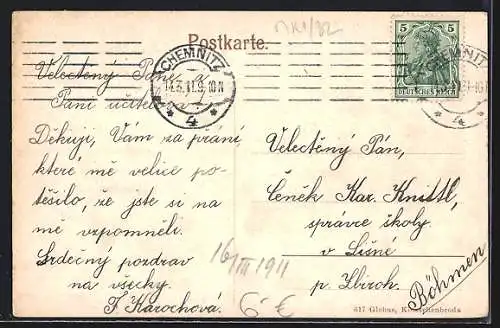 Postkarte.
CHEMNITZ
14.3.11.9-10N
4
5
DEUTSCHES REICH
Velectěný Pane a
Paní učitelka
Děkuji, Vám za přání,
které mě velice po-
těšilo, že jste si na
mě vzpomněli.
Srdečný pozdrav
na všecky.
F. Karochová.
Velectěný Pán,
Čeněk Kar. Knittl,
správce školy
v Líšné
p. Zbiroh.
Böhmen
16/III 1911
6 €
617 Globus,